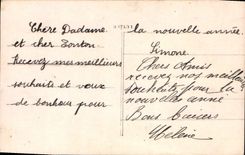 Chère Dadame
et cher Tonton
Recevez mes meilleurs
souhaits et vœux
de bonheur pour
la nouvelle année.
Simone
Chers Amis
recevez nos meilleurs
souhaits pour la
nouvelle année
Bons Baisers
Hélène